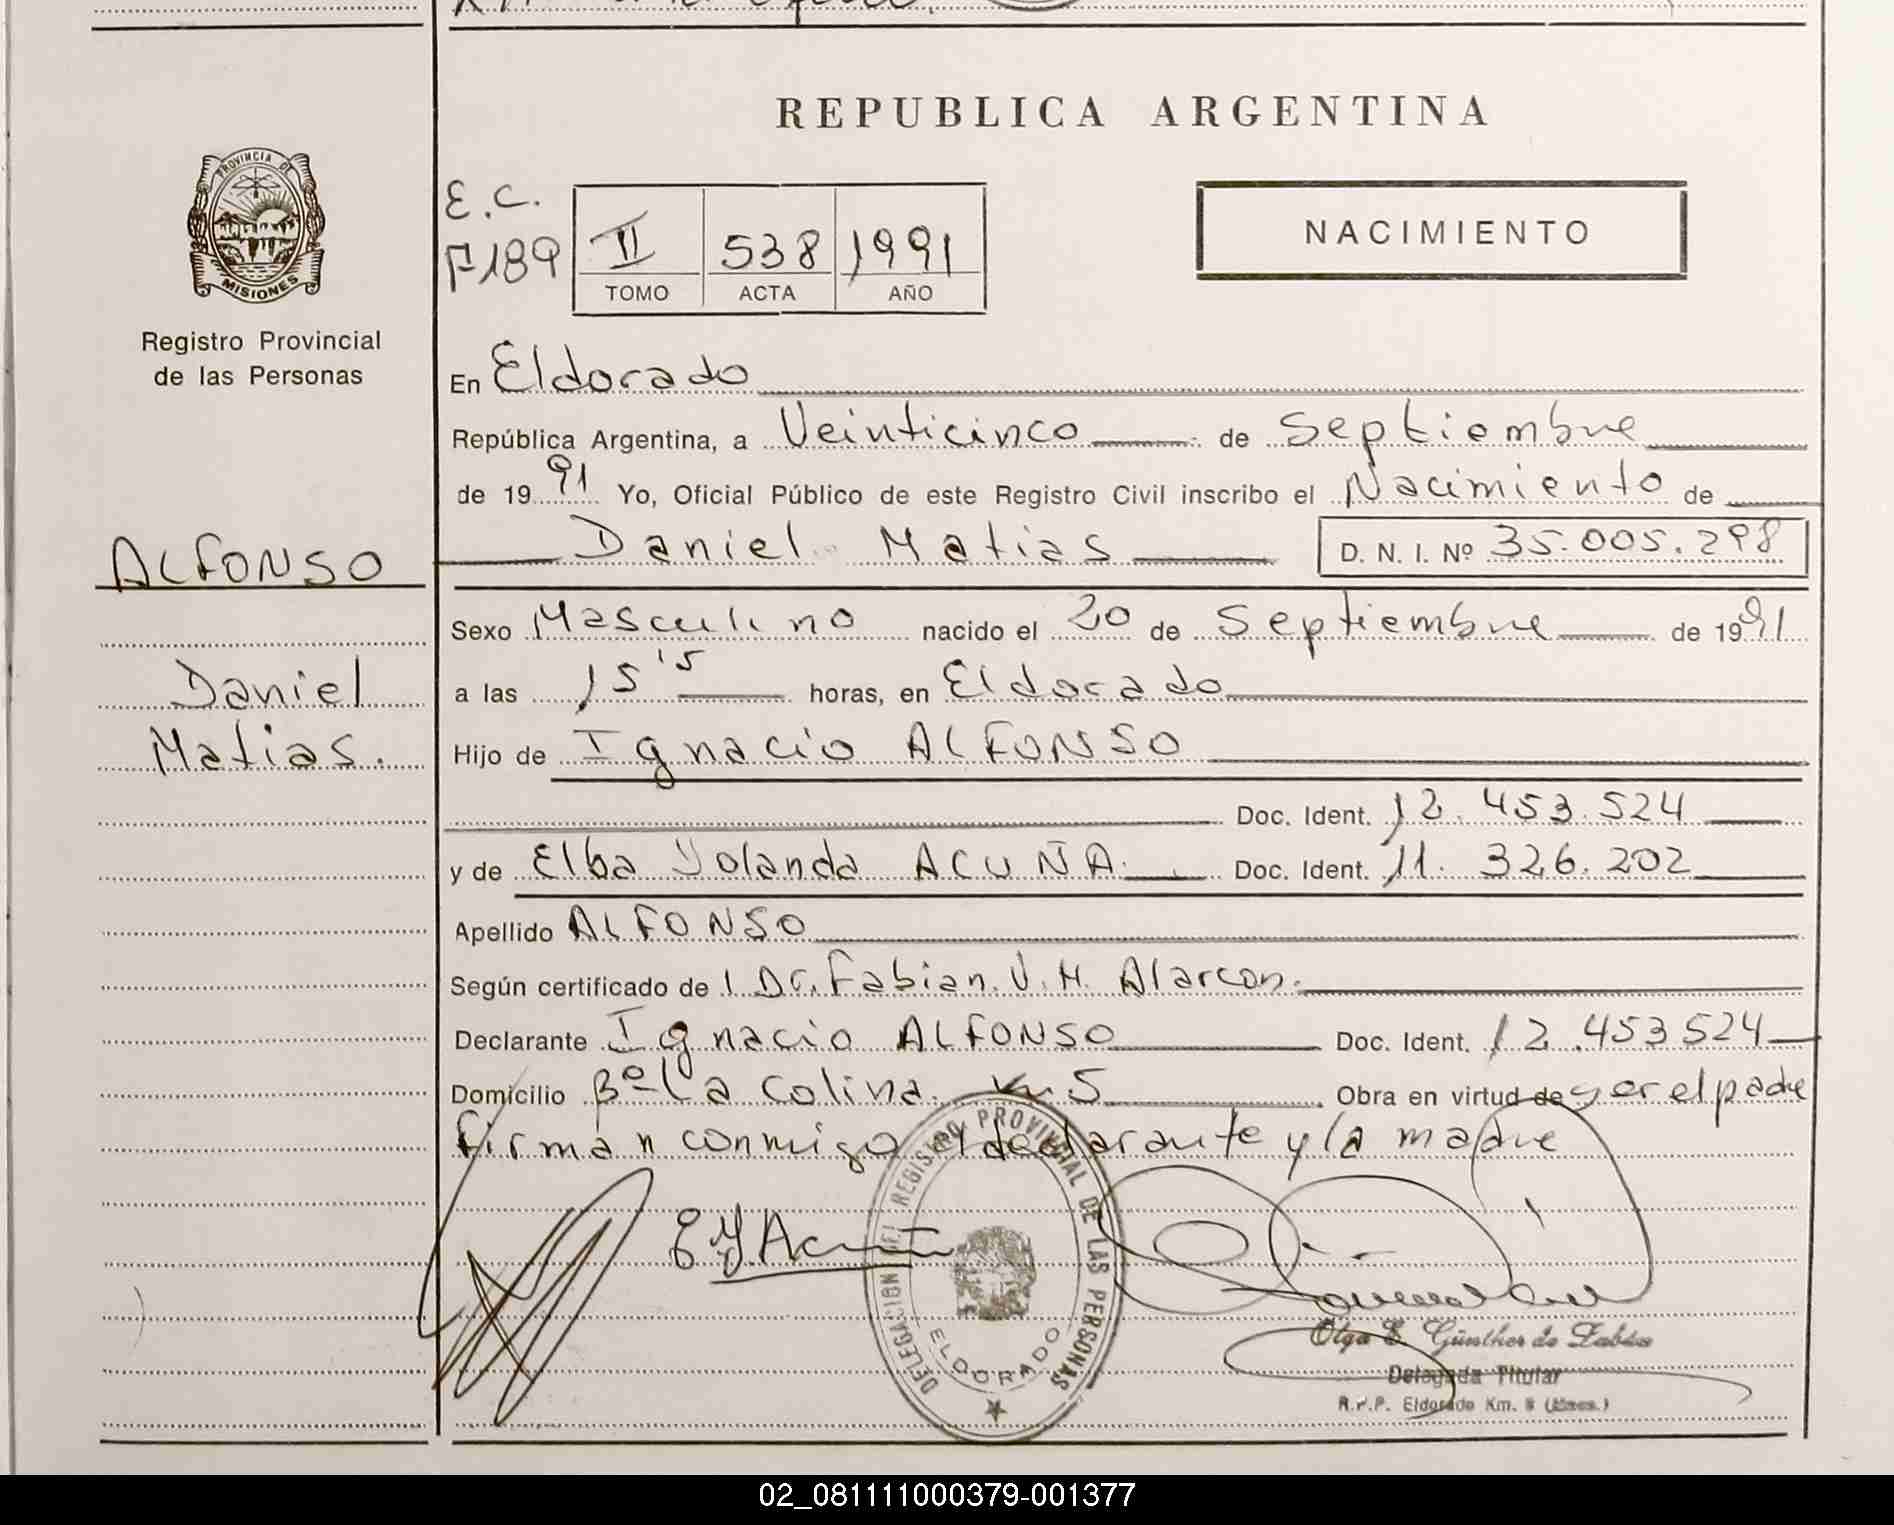 REPUBLICA ARGENTINA
PROVINCIA DE
MISIONES
Registro Provincial
de las Personas
E.C.
F189
II 538 1991
TOMO ACTA AÑO
NACIMIENTO
En Eldorado
República Argentina, a Veinticinco de Septiembre
de 1991 Yo, Oficial Público de este Registro Civil inscribo el Nacimiento de
ALFONSO
Daniel Matias D. N. I. Nº 35.005.298
Sexo Masculino nacido el 20 de Septiembre de 1991
Daniel
a las 15 15 horas, en Eldorado
Matias.
Hijo de Ignacio ALFONSO
Doc. Ident. 12.453.524
y de Elba Yolanda ACUÑA. Doc. Ident. 11.326.202
Apellido ALFONSO
Según certificado de l Dr. Fabian. V. H. Alarcon.
Declarante Ignacio ALFONSO Doc. Ident. 12.453524
Domicilio Bº La Colina. Km 5 Obra en virtud de ser el padre
firman conmigo el declarante y la madre
E Y Acuña
DELEGACION DEL REGISTRO PROVINCIAL DE LAS PERSONAS
ELDORADO
Olga E. Günther de
Delegada Titular
R.P.P. Eldorado Km. 8 (Mnes.)
02_081111000379-001377